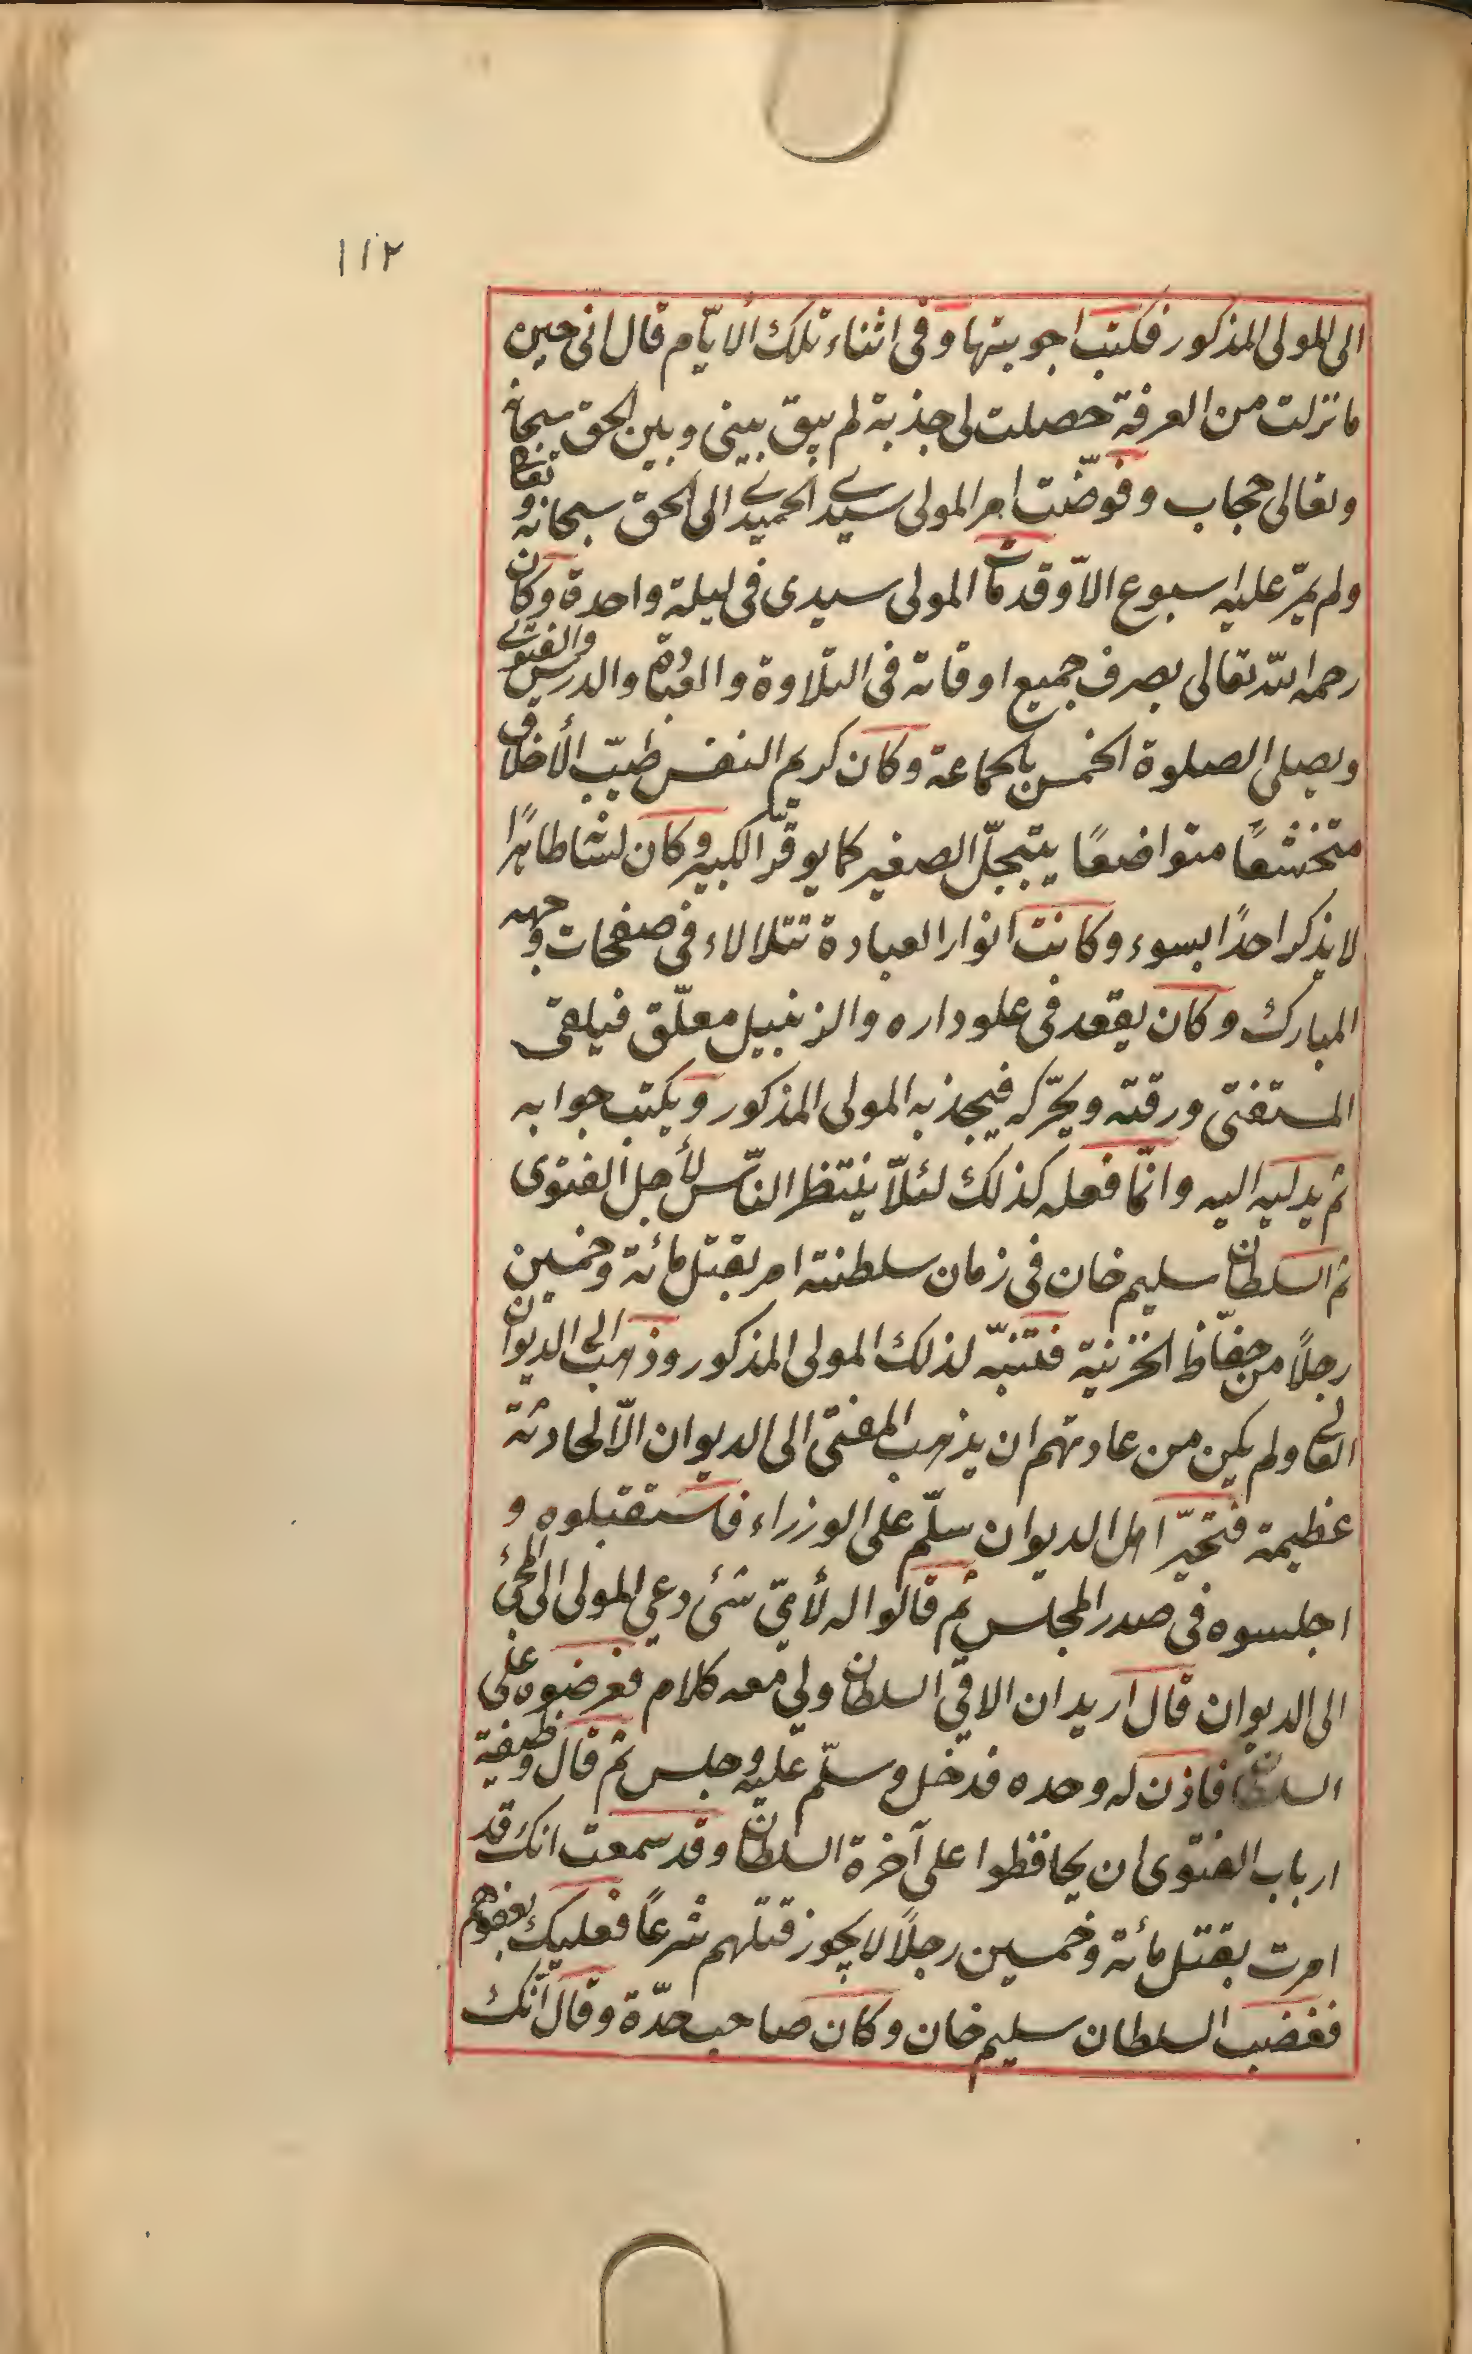 ١١٢
الى المولى المذكور فكتب اجوبتها وفى اثناء تلك الايّام قال انى حين
ما نزلت من العرفة حصلت لى جذبة لم يبق بينى وبين الحق سبحانه
وتعالى حجاب وفوّضت امر المولى سيدى الحميدى الى الحق سبحانه وتعالى
ولم يمرّ عليه اسبوع الاّ وقد مات المولى سيدى فى ليلة واحدة وكان
رحمه الله تعالى يصرف جميع اوقاته فى التلاوة والعبادة والدرس والفتوى
ويصلى الصلوة الخمس بالجماعة وكان كريم النفس طيّب الأخلاق
متخشعًا متواضعًا يتبجّل الصغير كما يوقّر الكبير وكان لسانه طاهرًا
لا يذكر احدًا بسوء وكانت انوار العبادة تتلالاء فى صفحات وجهه
المبارك وكان يقعد فى علو داره والزنبيل معلّق فيلقى
المستفتى ورقته ويحرّكه فيجذبه المولى المذكور ويكتب جوابه
ثم يدليه اليه وانّما فعله كذلك لئلاّ ينتظر النّاس لأجل الفتوى
ثم السلطان سليم خان فى زمان سلطنته امر بقتل مائة وخمسين
رجلاً من حفّاظ الخزينة فتنبّه لذلك المولى المذكور وذهب الى الديوان
العالى ولم يكن من عادتهم ان يذهب المفتى الى الديوان الاّ لحادثة
عظيمة فتحيّر اهل الديوان سلّم على الوزراء فاستقبلوه و
اجلسوه فى صدر المجلس ثم قالوا له لأىّ شئ دعى المولى الى المجئ
الى الديوان قال اريد ان الاقى السلطان ولى معه كلام فعرضوه على
السلطان فاذن له وحده فدخل وسلّم عليه وجلس ثم قال وظيفة
ارباب الفتوى ان يحافظوا على آخرة السلطان وقد سمعت انك قد
امرت بقتل مائة وخمسين رجلاً لا يجوز قتلهم شرعًا فعليك بعفوهم
فغضب السلطان سليم خان وكان صاحب حدّة وقال انّك